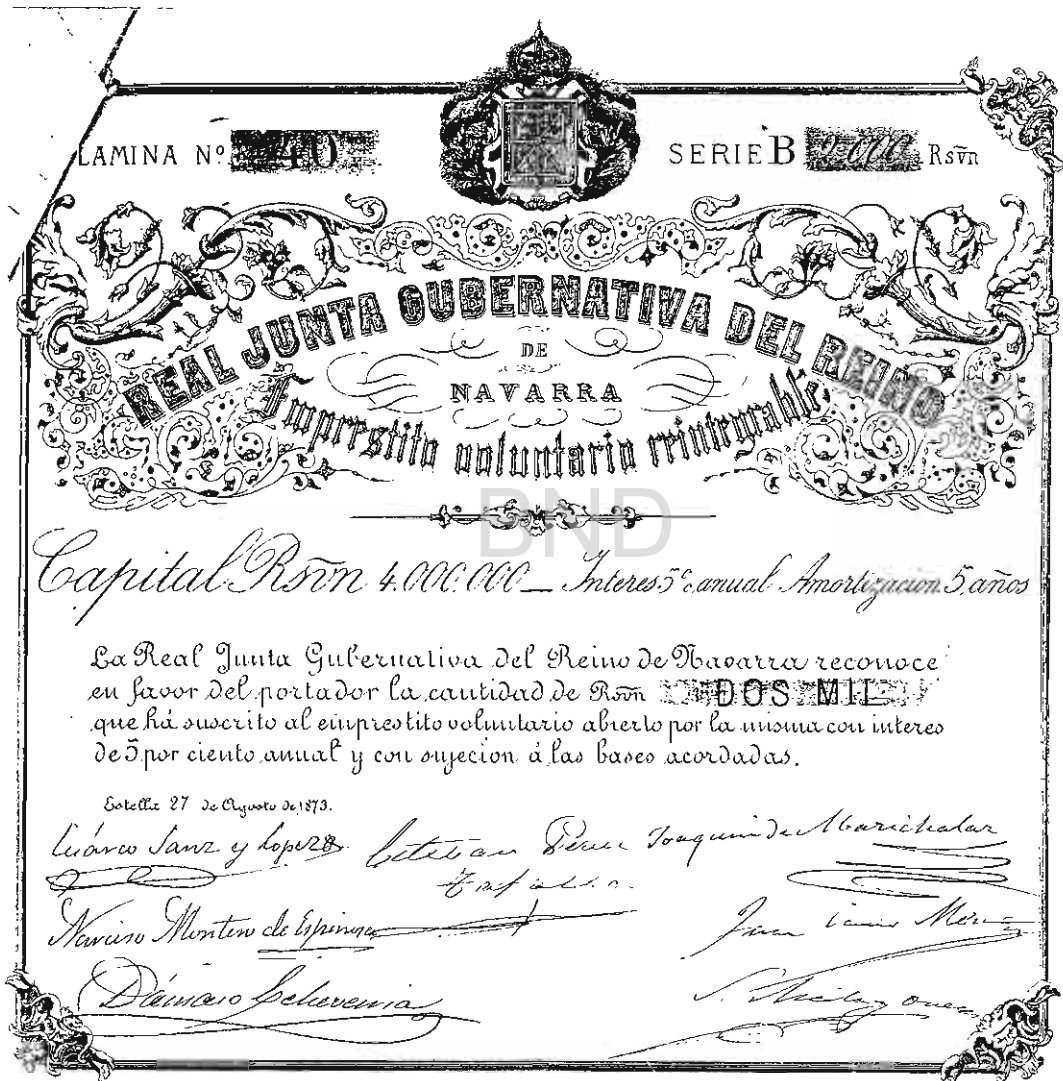 LAMINA Nº 40
SERIE B 2.000 Rsvn
REAL JUNTA GUBERNATIVA DEL REINO
DE
NAVARRA
Emprestito voluntario reintegrable
BND
Capital Rsvn 4.000.000 — Interes 5 % anual Amortizacion 5 años
La Real Junta Gubernativa del Reino de Navarra reconoce
en favor del portador la cantidad de Rsvn DOS MIL
que há suscrito al emprestito voluntario abierto por la misma con interes
de 5 por ciento anual y con sujecion á las bases acordadas.
Estella 27 de Agosto de 1873.
Sanz y Lopez Esteban Perez Joaquin de Marichalar
Tafalla
Narciso Montero de Espinosa Juan
Dámaso Echeverria